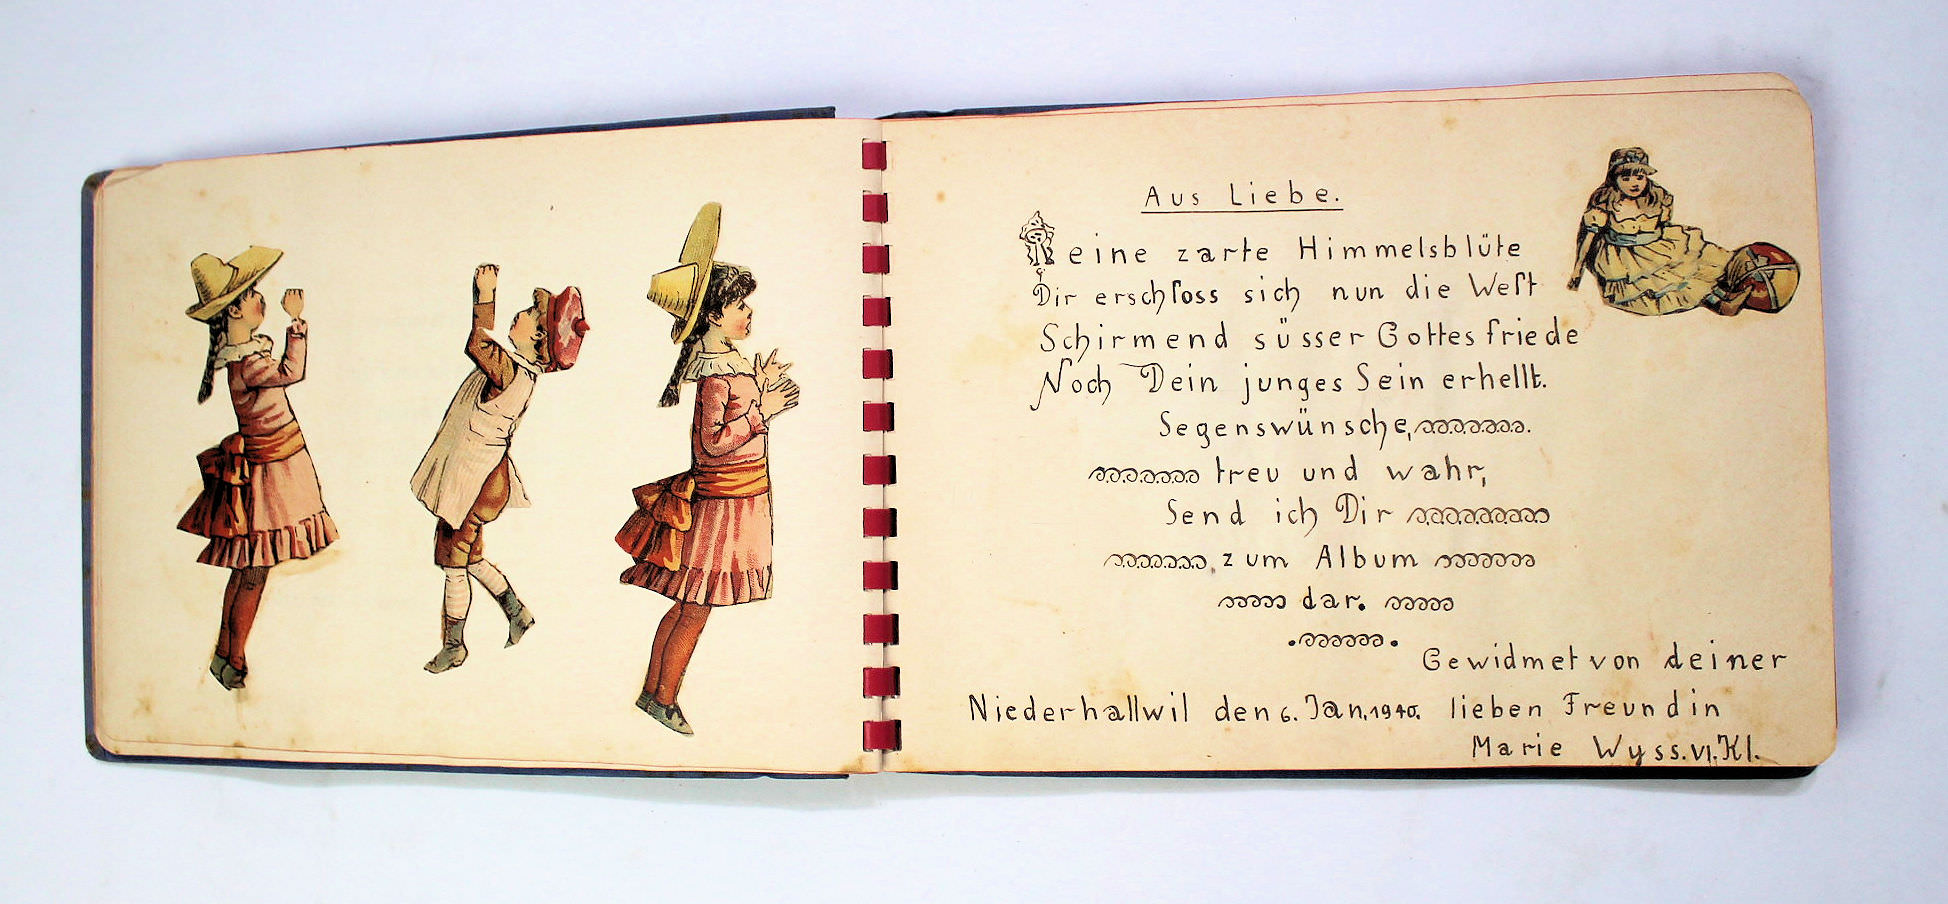 Aus Liebe.
Reine zarte Himmelsblüte
Dir erschloss sich nun die Welt
Schirmend süsser Gottesfriede
Noch Dein junges Sein erhellt.
Segenswünsche,
treu und wahr,
Send ich Dir
zum Album
dar.
Gewidmet von deiner
Niederhallwil den 6. Jan. 1940. lieben Freundin
Marie Wyss. VI. Kl.